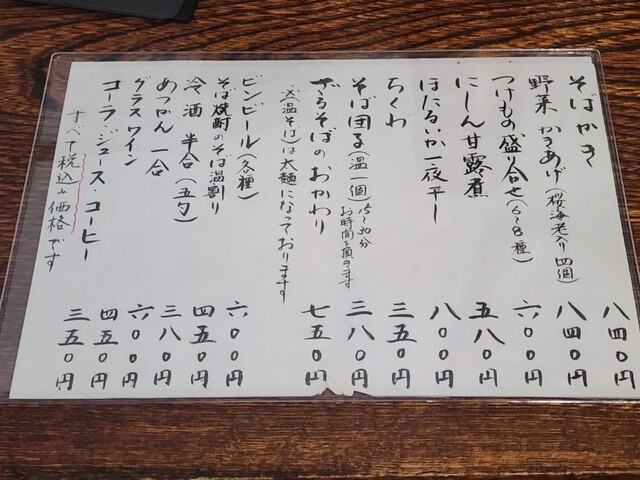 そばがき 八四〇円
野菜かきあげ(桜海老入り 四個) 八四〇円
つけもの盛り合せ(6~8種) 六〇〇円
にしん甘露煮 五八〇円
ほたるいか一夜干し 八〇〇円
ちくわ 三五〇円
そば団子(温一個) 三八〇円
15~20分
お時間を頂きます
ざるそばのおかわり 七五〇円
※(温そば)は太麺になっております
ビンビール(各種) 六〇〇円
そば焼酎のそば湯割り 四五〇円
冷酒 半合(五勺) 三八〇円
あつかん 一合 六〇〇円
グラスワイン 四五〇円
コーラ・ジュース・コーヒー 三五〇円
すべて税込み価格です